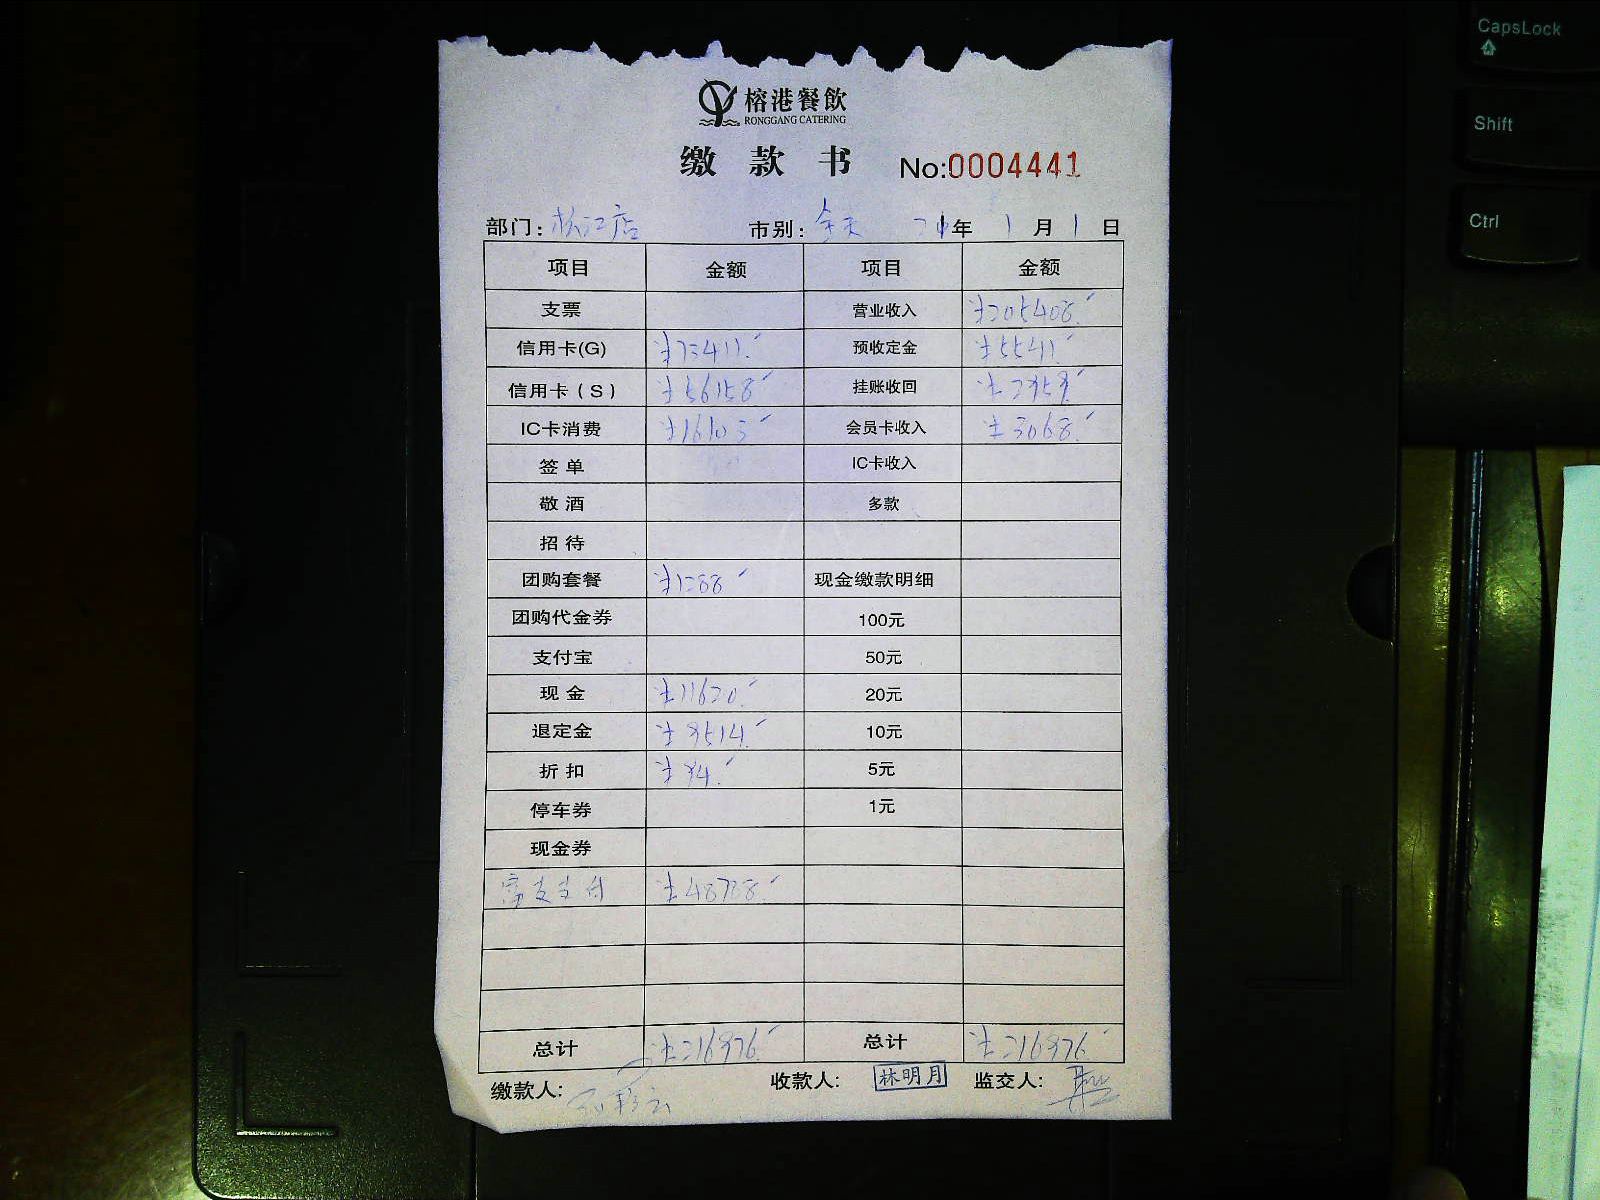 CapsLock
Shift
Ctrl
榕港餐飲
RONGGANG CATERING
缴 款 书 No:0004441
部门: 松江店 市别: 全天 年 1 月 1 日
项目 金额 项目 金额
支票 营业收入 ¥205408.
信用卡(G) ¥73411. 预收定金 ¥5541.
信用卡(S) ¥56158 挂账收回 ¥2959.
IC卡消费 ¥16103 会员卡收入 ¥3068.
签 单 IC卡收入
敬 酒 多款
招 待
团购套餐 ¥1288 现金缴款明细
团购代金券 100元
支付宝 50元
现 金 ¥11620. 20元
退定金 ¥9514. 10元
折 扣 ¥94. 5元
停车券 1元
现金券
富友支付 ¥48788.
总计 ¥216976. 总计 ¥216976.
缴款人: 收款人: 林明月 监交人: